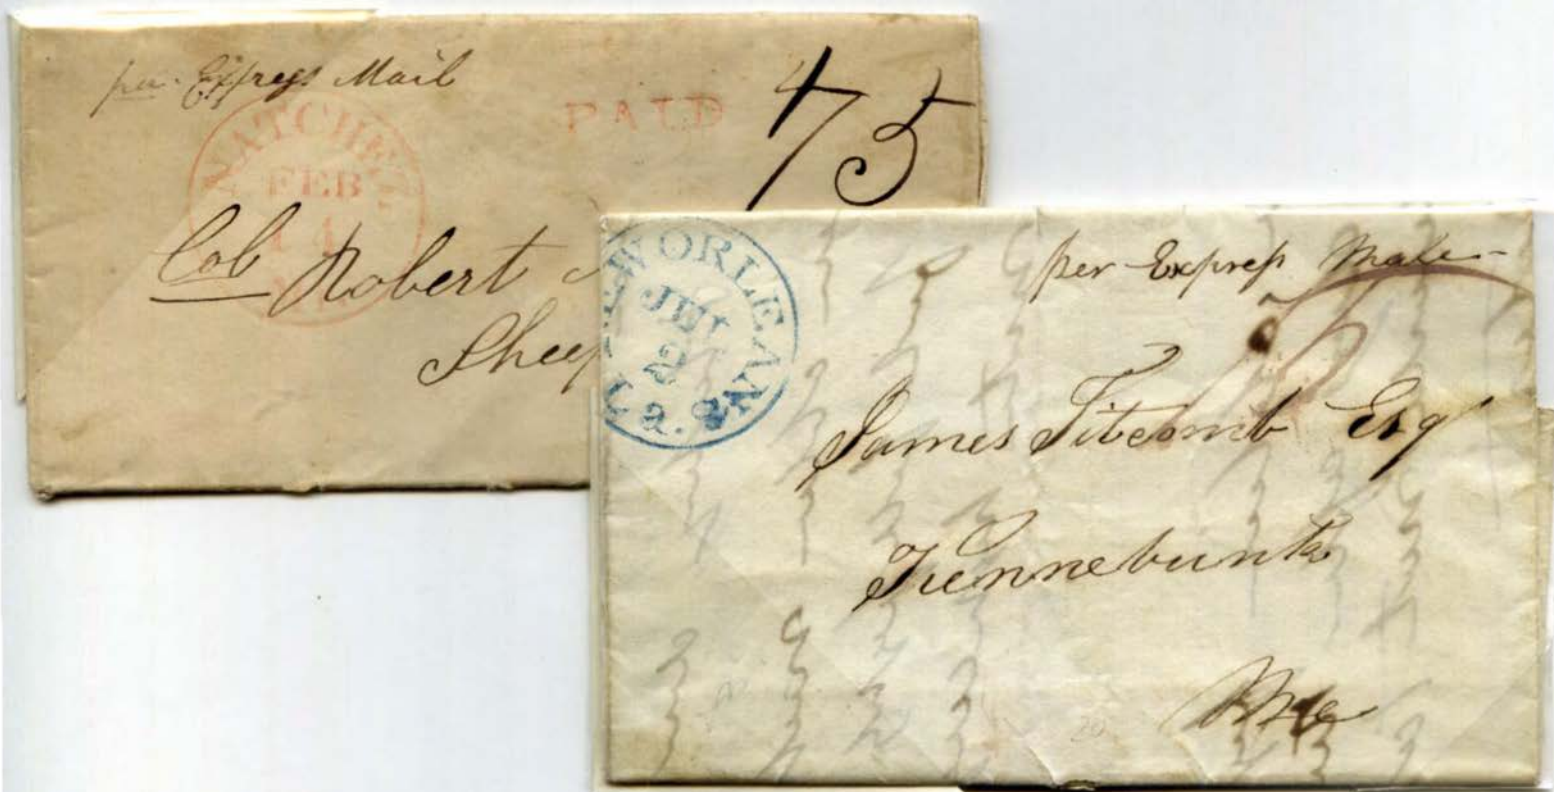 per Express Mail
NATCHEZ
FEB
PAID
75
Col Robert
Sheep
NEW ORLEANS
JUL
2
La.
per Express Male
James Titcomb Esqr
Kennebunk
Me